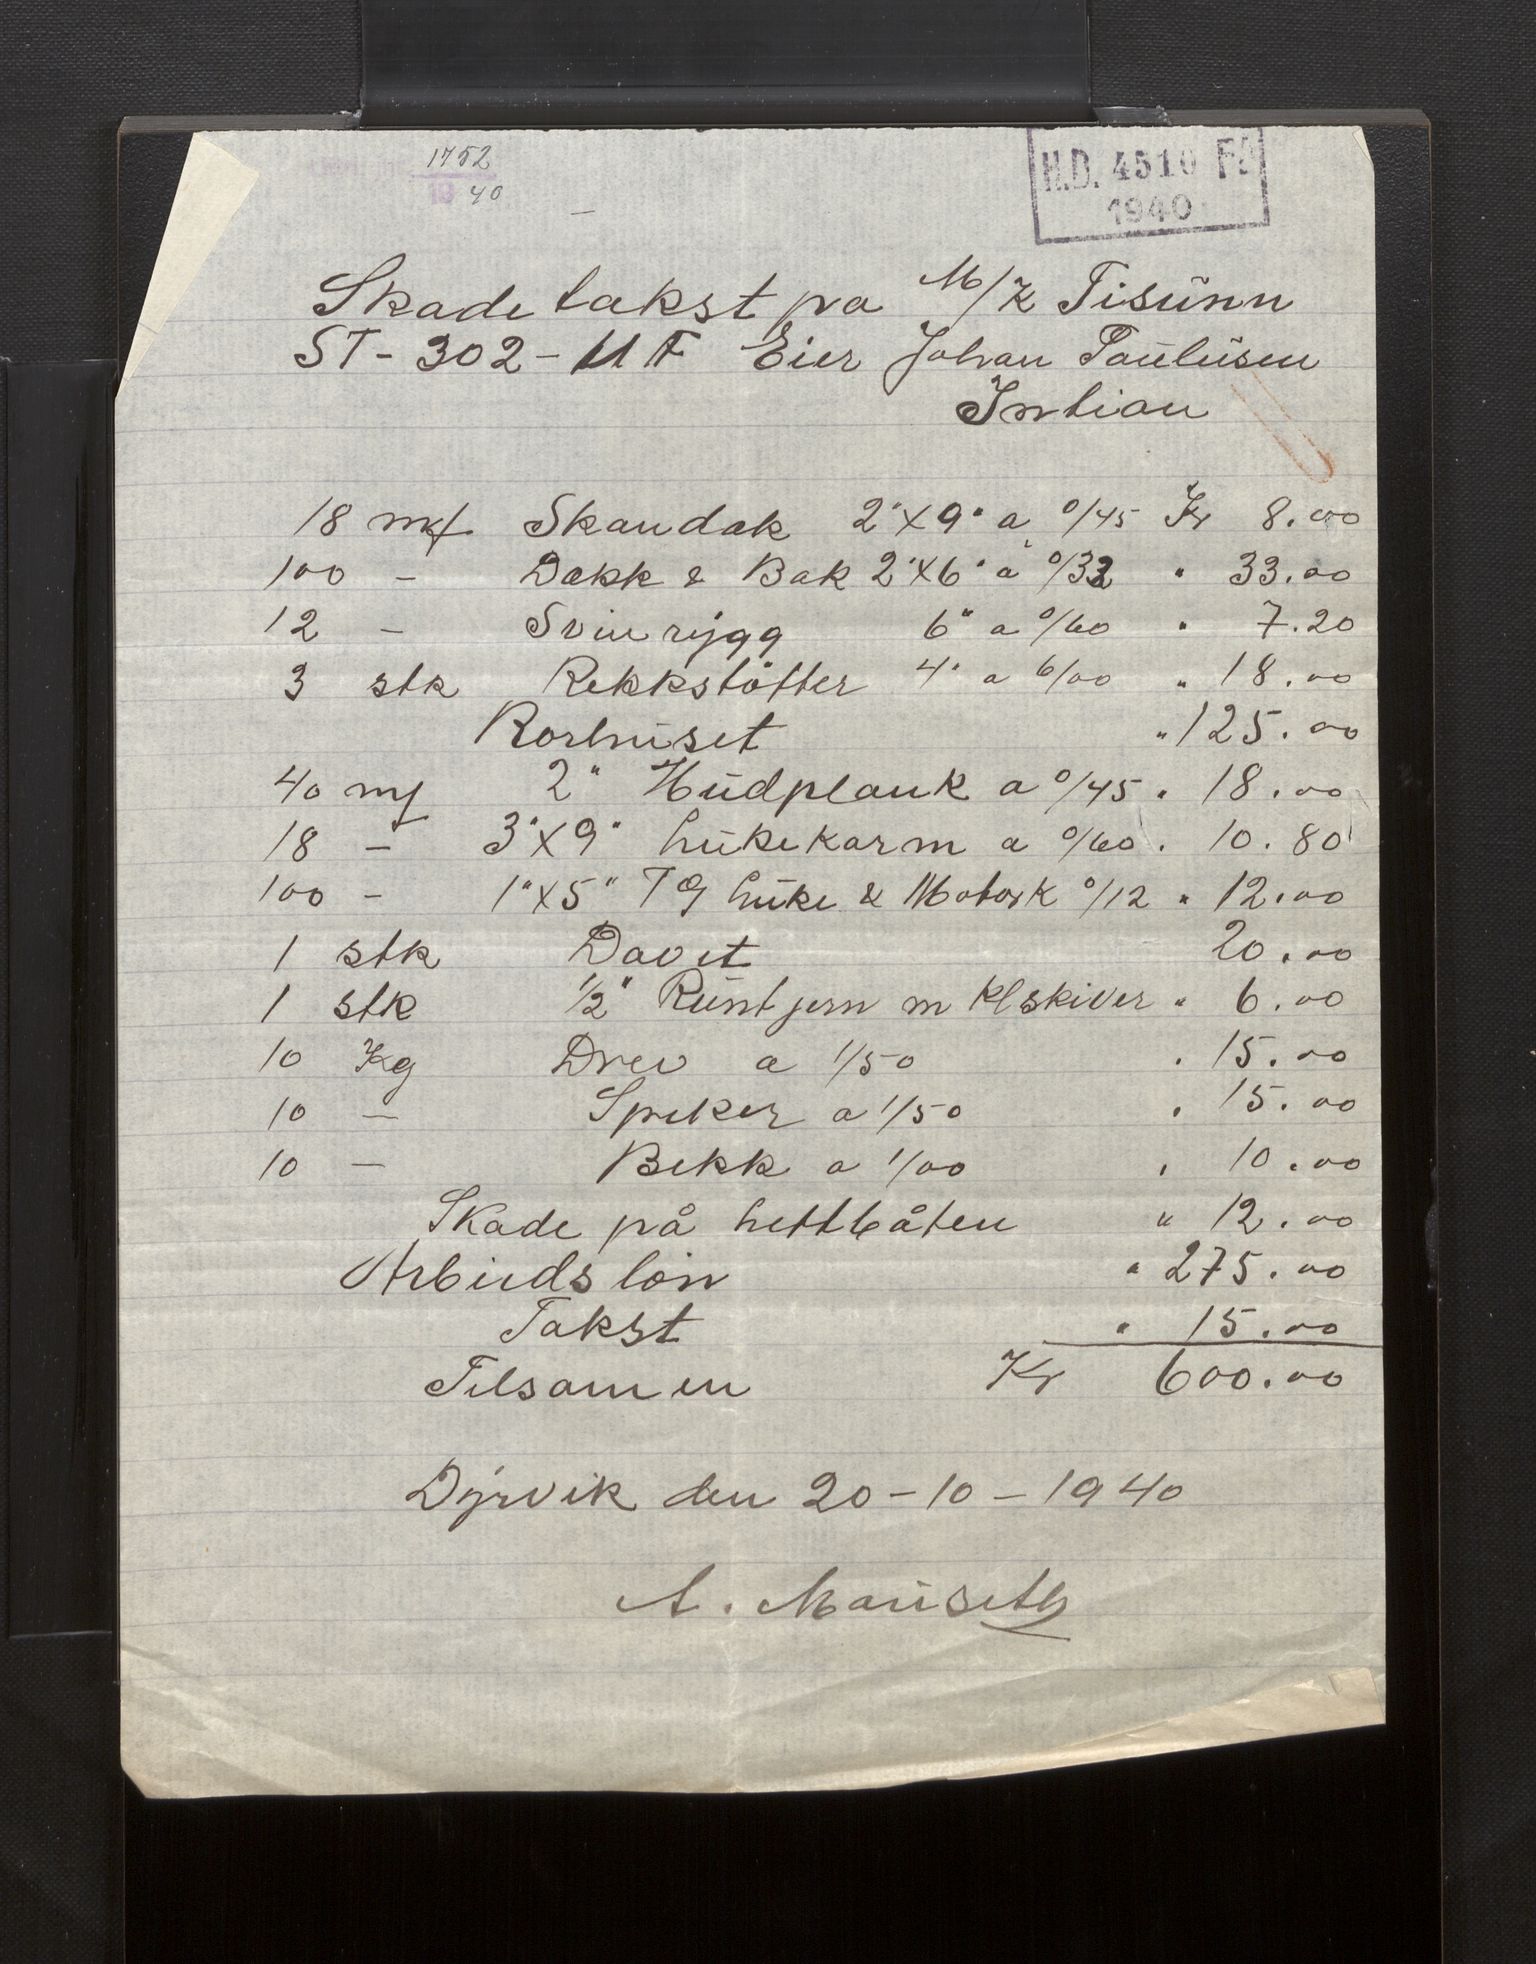 1752
19 40
H.D. 4510 F5
1940
Skadetakst pa M/K Tisünn
ST - 302 - UF Eier Johan Paulüsen
Intian
18 mf Skandak 2"X9" a 0/45 Kr 8.00
100 - Dækk & Bak 2"X6" a 0/33 " 33.00
12 - Svinrygg 6" a 0/60 " 7.20
3 stk Rekkstötter 4" a 6/00 " 18.00
Rorhüset " 125.00
40 mf 2" Hüdplank a 0/45 " 18.00
18 - 3"X9" Lükekarm a 0/60 " 10.80
100 - 1"X5" T G Lüke & Motork 0/12 " 12.00
1 stk Davit 20.00
1 stk 1/2" Rüntjern m Klskiver " 6.00
10 Kg Drev a 1/50 " 15.00
10 - Spiker a 1/50 " 15.00
10 - Bekk a 1/00 " 10.00
Skade på lettbåten " 12.00
Arbeidslön " 275.00
Takst " 15.00
Tilsamen Kr 600.00
Dyrvik den 20-10-1940
A. Mauseth